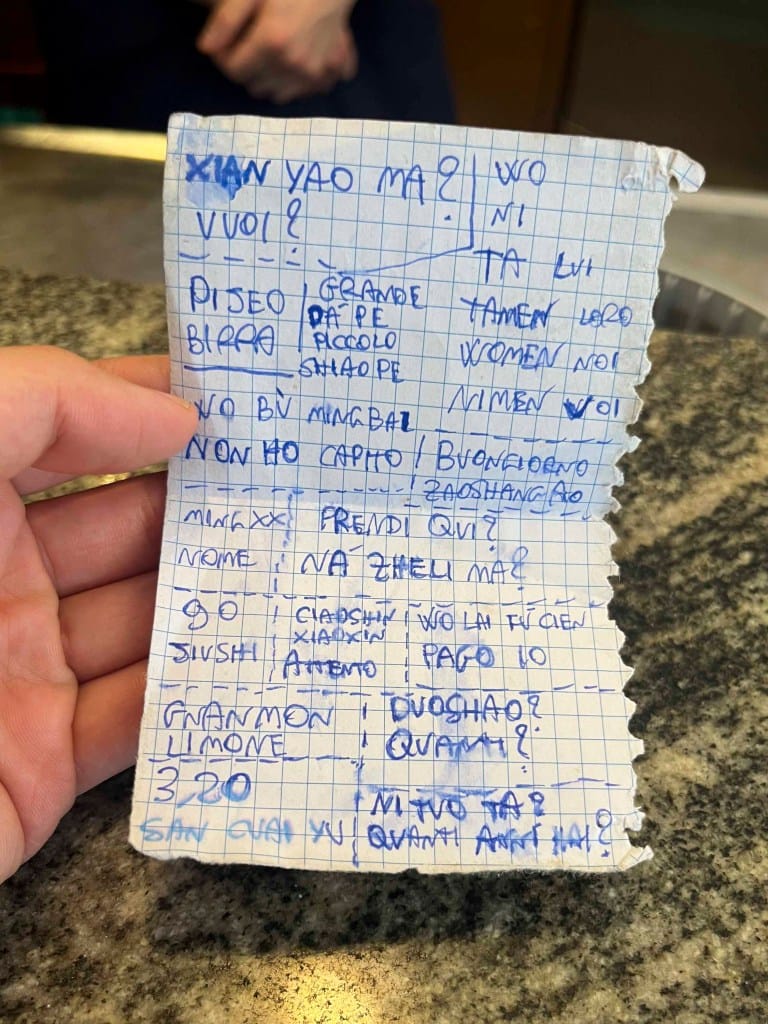 XIAN YAO MA?
VUOI?
WO
NI
TA LUI
TAMEN LORO
WOMEN NOI
NIMEN VOI
PIJEO
BIRRA
GRANDE
DÀ PE
PICCOLO
SHIAO PE
WO BÙ MINGBAI
NON HO CAPITO
BUONGIORNO
ZAOSHANG AO
MING XX
NOME
PRENDI QUI?
NÁ ZHELI MA?
90
JIUSHI
CIAOSHIN
XIAOXIN
ATTENTO
WŎ LAI FÙ CIEN
PAGO IO
GNANMON
LIMONE
DUOSHAO?
QUANTI?
3,20
SAN CUAI YU
NI TUO TA?
QUANTI ANNI HAI?